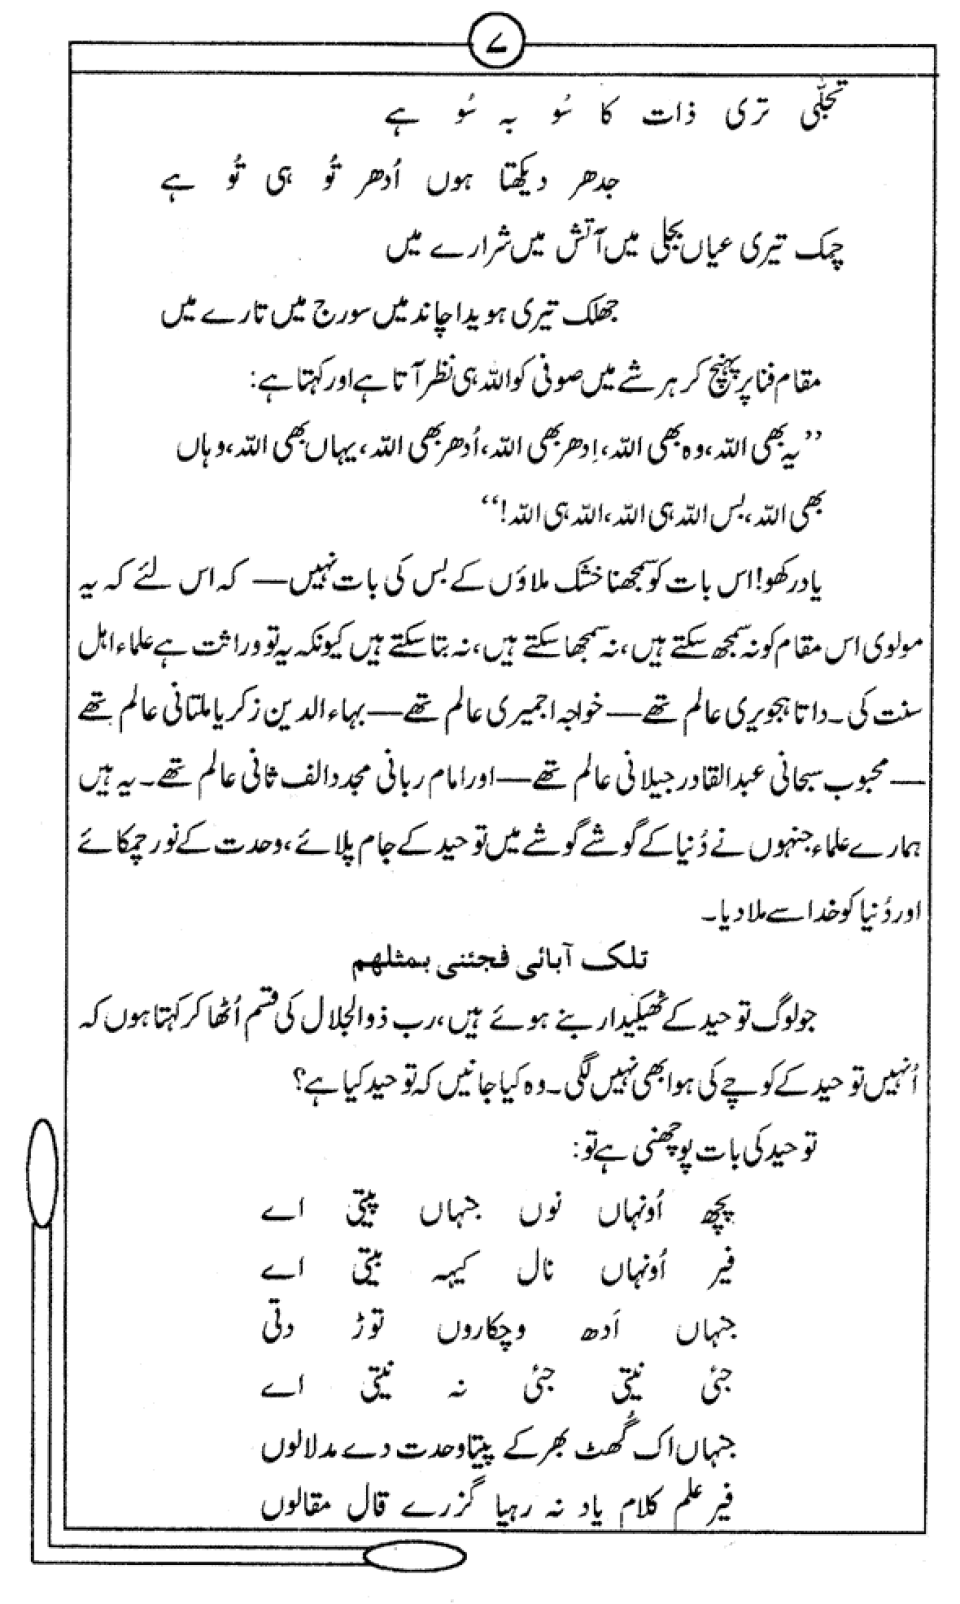 ۷
تجلّی تری ذات کا سُو بہ سُو ہے
جدھر دیکھتا ہوں اُدھر تُو ہی تُو ہے
چمک تیری عیاں بجلی میں آتش میں شرارے میں
جھلک تیری ہویدا چاند میں سورج میں تارے میں
مقام فنا پر پہنچ کر ہر شے میں صوفی کو اللہ ہی نظر آتا ہے اور کہتا ہے:
’’یہ بھی اللہ، وہ بھی اللہ، اِدھر بھی اللہ، اُدھر بھی اللہ، یہاں بھی اللہ، وہاں
بھی اللہ، بس اللہ ہی اللہ، اللہ ہی اللہ!‘‘
یاد رکھو! اس بات کو سمجھنا خشک ملاؤں کے بس کی بات نہیں — کہ اس لئے کہ یہ
مولوی اس مقام کو نہ سمجھ سکتے ہیں، نہ سمجھا سکتے ہیں، نہ بتا سکتے ہیں کیونکہ یہ تو وراثت ہے علماء اہل
سنت کی۔ داتا ہجویری عالم تھے — خواجہ اجمیری عالم تھے — بہاء الدین زکریا ملتانی عالم تھے
— محبوب سبحانی عبدالقادر جیلانی عالم تھے — اور امام ربانی مجدد الف ثانی عالم تھے۔ یہ ہیں
ہمارے علماء جنہوں نے دُنیا کے گوشے گوشے میں توحید کے جام پلائے، وحدت کے نور چمکائے
اور دُنیا کو خدا سے ملا دیا۔
تلک آبائی فجئنی بمثلھم
جو لوگ توحید کے ٹھیکیدار بنے ہوئے ہیں، رب ذوالجلال کی قسم اُٹھا کر کہتا ہوں کہ
اُنہیں توحید کے کوچے کی ہوا بھی نہیں لگی۔ وہ کیا جانیں کہ توحید کیا ہے؟
توحید کی بات پوچھنی ہے تو:
پچھ اُونہاں نوں جنہاں پیتی اے
فیر اُونہاں نال کیہہ بیتی اے
جنہاں اَدھ وچکاروں توڑ دتی
جئی نیتی جئی نہ نیتی اے
جنہاں اک گُھٹ بھر کے پیتا وحدت دے مدلالوں
فیر علم کلام یاد نہ رہیا گزرے قال مقالوں